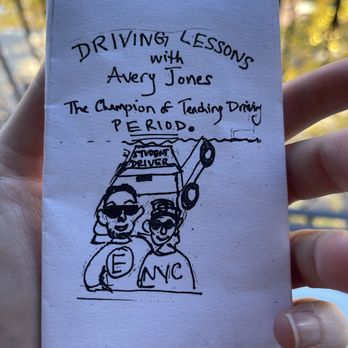 DRIVING LESSONS
with
Avery Jones
The Champion of Teaching Driving
PERIOD.
STUDENT
DRIVER
E
NYC